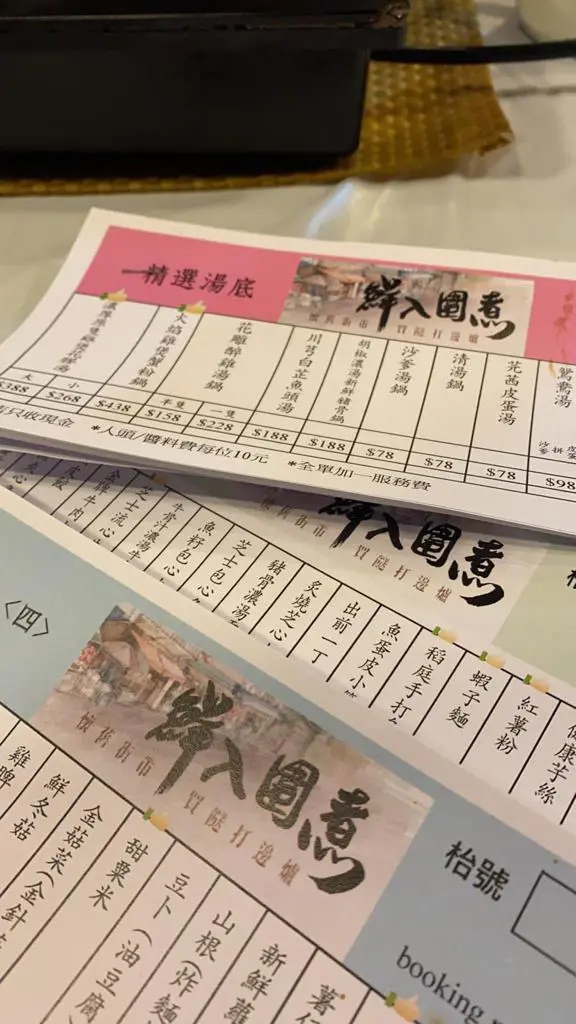 精選湯底
鮮入圍煮
懷舊街市 買餸打邊爐
鴛鴦湯
芫茜皮蛋湯
清湯鍋
沙爹湯鍋
胡椒濃湯新鮮豬骨鍋
川芎白芷魚頭湯
花雕醉雞湯鍋
火焰雞煲蟹粉鍋
大 小 半隻 一隻
$388 $268 $438 $158 $228 $188 $188 $78 $78 $78 $98
只收現金 *人頭/醬料費每位10元 *全單加一服務費
鮮入圍煮
懷舊街市 買餸打邊爐
健康芋絲
紅薯粉
蝦子麵
稻庭手打
魚蛋皮小
出前一丁
炙燒芝心
豬骨濃湯
芝士包心
魚籽包心
牛骨汁濃湯牛
芝士流心
金牌牛肉
〈四〉
鮮入圍煮
懷舊街市 買餸打邊爐
枱號
booking
薯仔
新鮮蘿
山根(炸麵
豆卜(油豆腐
甜粟米
金菇菜(金針菇
鮮冬菇
雞髀